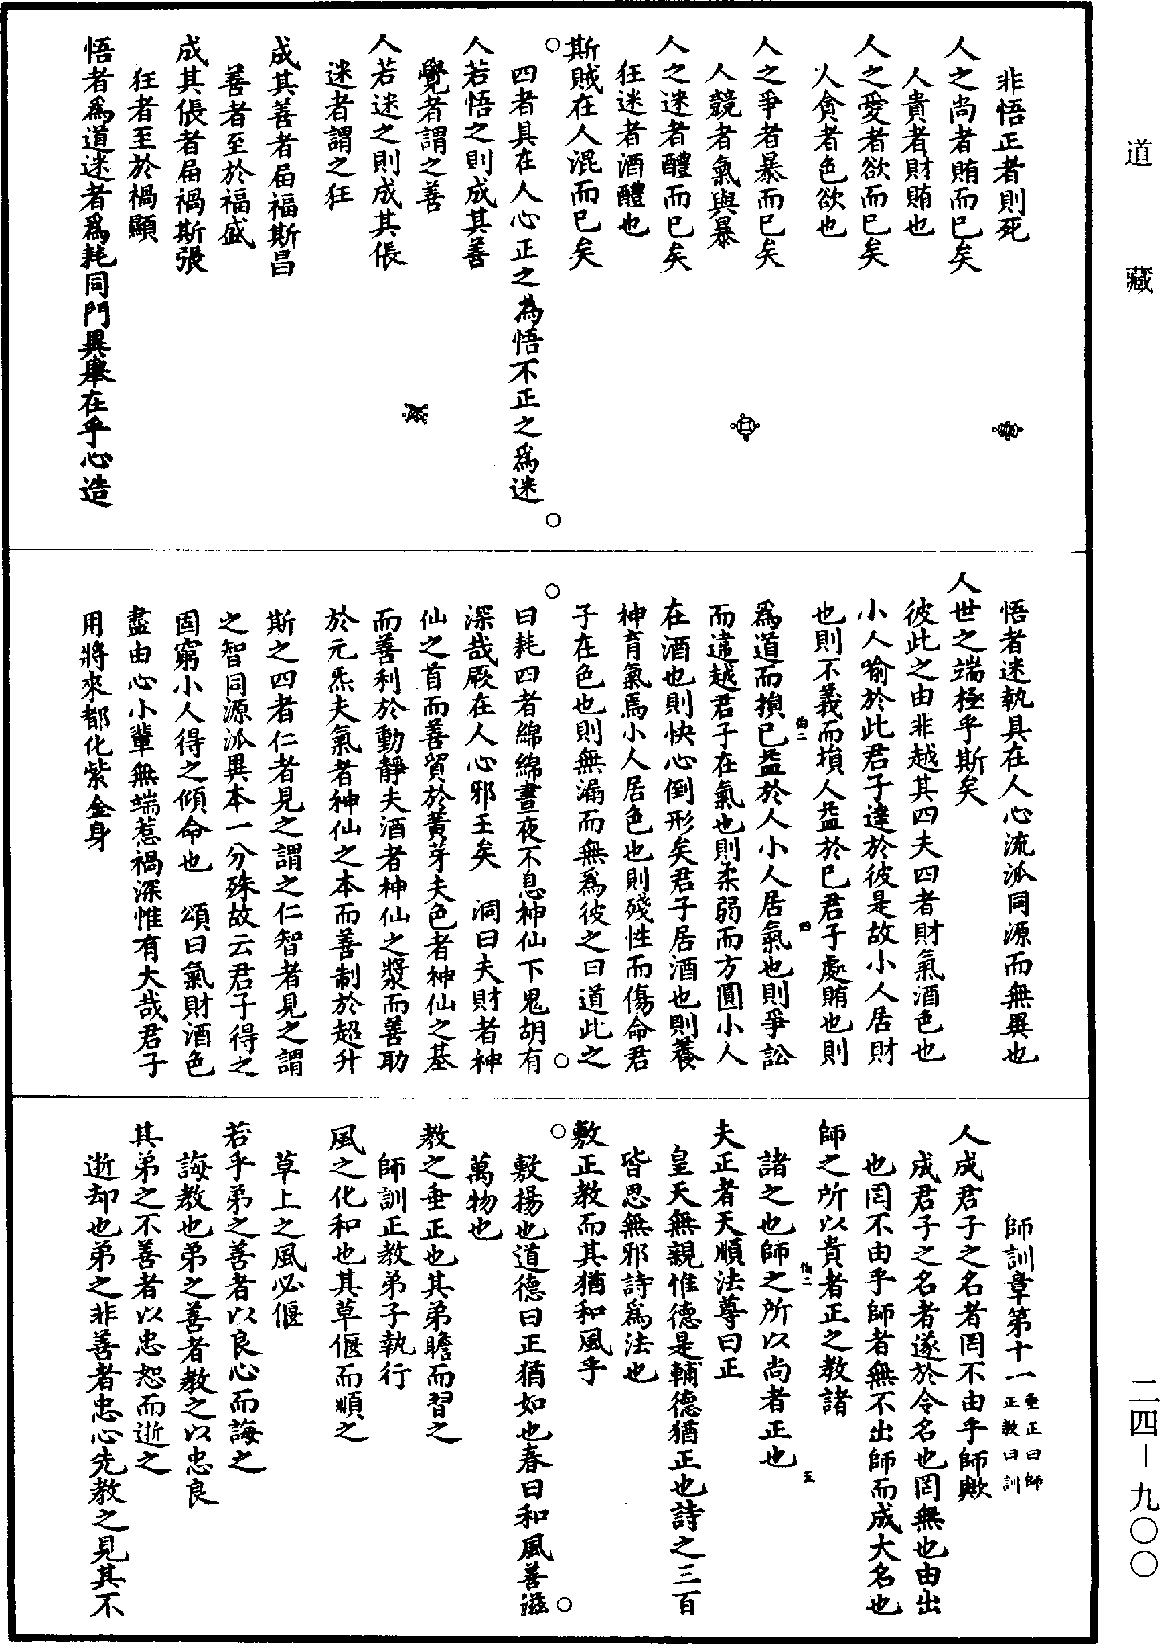 道藏
二四—九〇〇
非悟正者則死
人之尚者賄而已矣
人貴者財賄也
人之愛者欲而已矣
人貪者色欲也
人之爭者暴而已矣
人競者氣與暴
人之迷者醴而已矣
狂迷者酒醴也
斯賊在人混而已矣
四者具在人心正之為悟不正之爲迷
人若悟之則成其善
覺者謂之善
人若迷之則成其倀
迷者謂之狂
成其善者屆福斯昌
善者至於福盛
成其倀者屆禍斯張
狂者至於禍顯
悟者爲道迷者爲耗同門異舉在乎心造
悟者迷執具在人心流派同源而無異也
人世之端極乎斯矣
彼此之由非越其四夫四者財氣酒色也
小人喻於此君子達於彼是故小人居財
也則不義而損人益於已君子處賄也則
爲道而損已益於人小人居氣也則爭訟
而違越君子在氣也則柔弱而方圓小人
在酒也則快心倒形矣君子居酒也則養
神育氣焉小人居色也則殘性而傷命君
子在色也則無漏而無爲彼之曰道此之
曰耗四者綿綿晝夜不息神仙下鬼胡有
深哉厥在人心邪王矣　洞曰夫財者神
仙之首而善貿於黃芽夫色者神仙之基
而善利於動靜夫酒者神仙之漿而善助
於元炁夫氣者神仙之本而善制於超升
斯之四者仁者見之謂之仁智者見之謂
之智同源派異本一分殊故云君子得之
固窮小人得之傾命也　頌曰氣財酒色
盡由心小輩無端惹禍深惟有大哉君子
用將來都化紫金身
伯二
四
師訓章第十一垂正曰師正教曰訓
人成君子之名者罔不由乎師歟
成君子之名者遂於令名也罔無也由出
也罔不由乎師者無不出師而成大名也
師之所以貴者正之教諸
諸之也師之所以尚者正也
夫正者天順法尊曰正
皇天無親惟德是輔德猶正也詩之三百
皆思無邪詩爲法也
敷正教而其猶和風乎
敷揚也道德曰正猶如也春日和風善滋
萬物也
教之垂正也其弟瞻而習之
師訓正教弟子執行
風之化和也其草偃而順之
草上之風必偃
若乎弟之善者以良心而誨之
誨教也弟之善者教之以忠良
其弟之不善者以忠恕而逝之
逝却也弟之非善者忠心先教之見其不
伯二
五